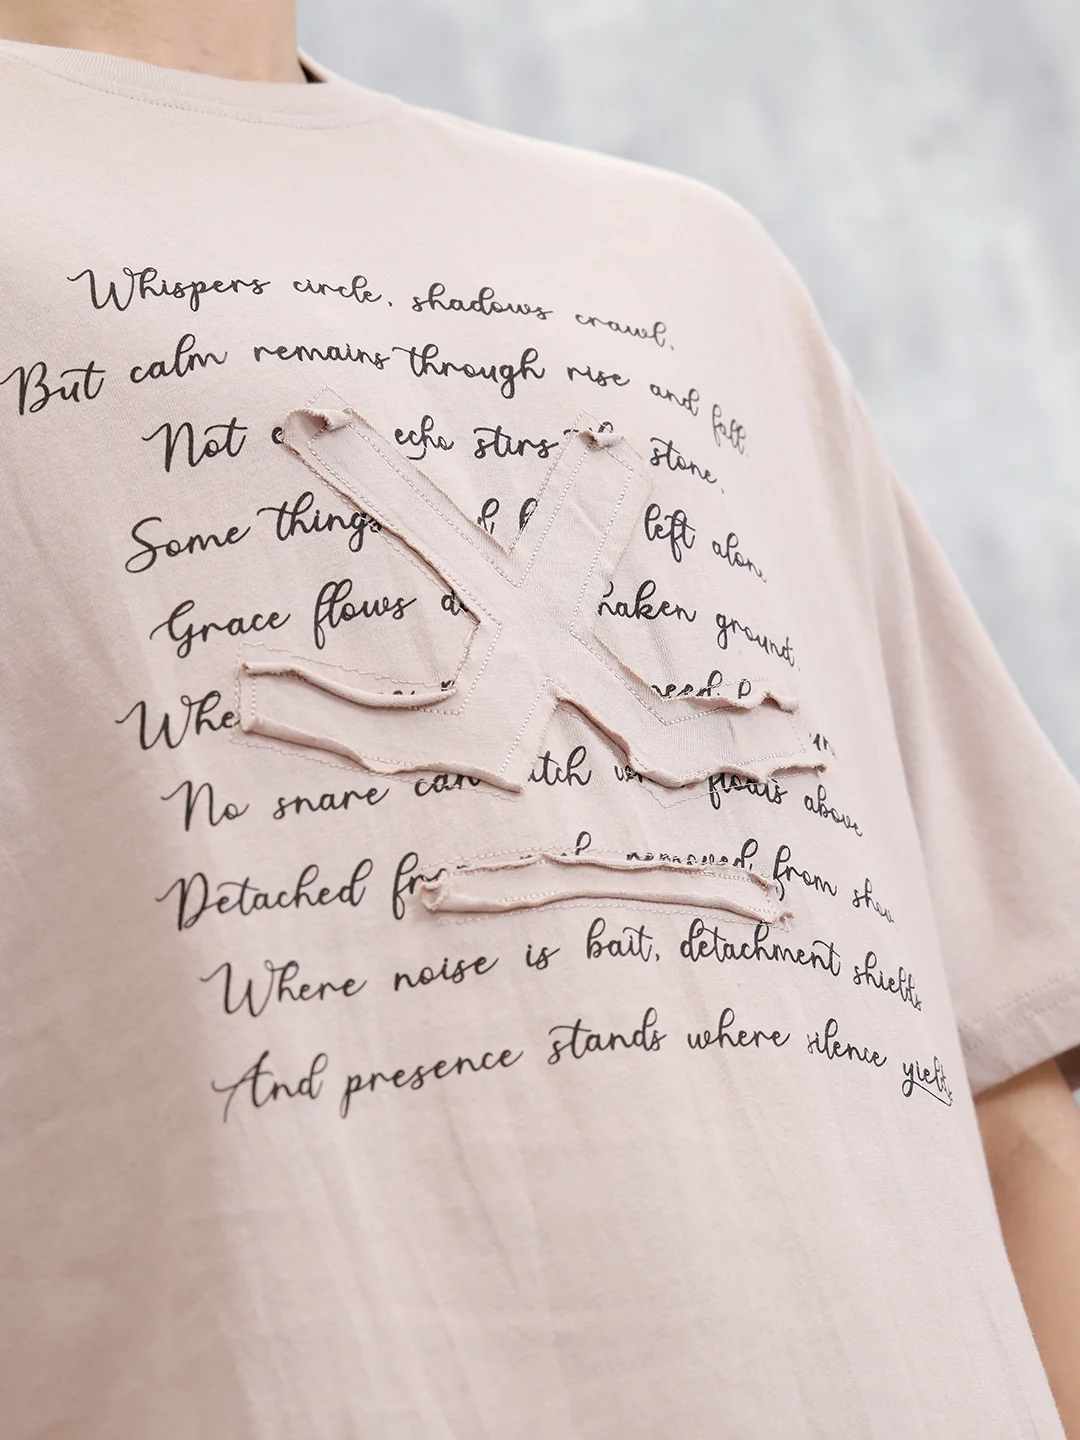 Whispers circle, shadows crawl,
But calm remains through rise and fall.
Not echo stirs stone,
Some things left alon
Grace flows haken ground
Whe need
No snare can floats above
Detached removed, from
Where noise is bait, detachment shields
And presence stands where silence yield